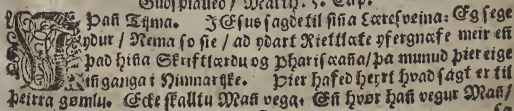 Guðspialled / Matth. 5. Cap.
Pañ Tijma. JEsus sagde til siña Læresveina: Eg sege
ydur / Nema so sie / ad ydart Riettlæte yfergnæfe meir eñ
það hiña Skriftlærdu og Phariseaña / þa munud þier eige
iñganga i Himnarijke. Þier hafed heyrt hvad sagt er til
þeirra gømlu. Ecke skalltu Mañ vega. Eñ hvør hañ vegur Mañ /